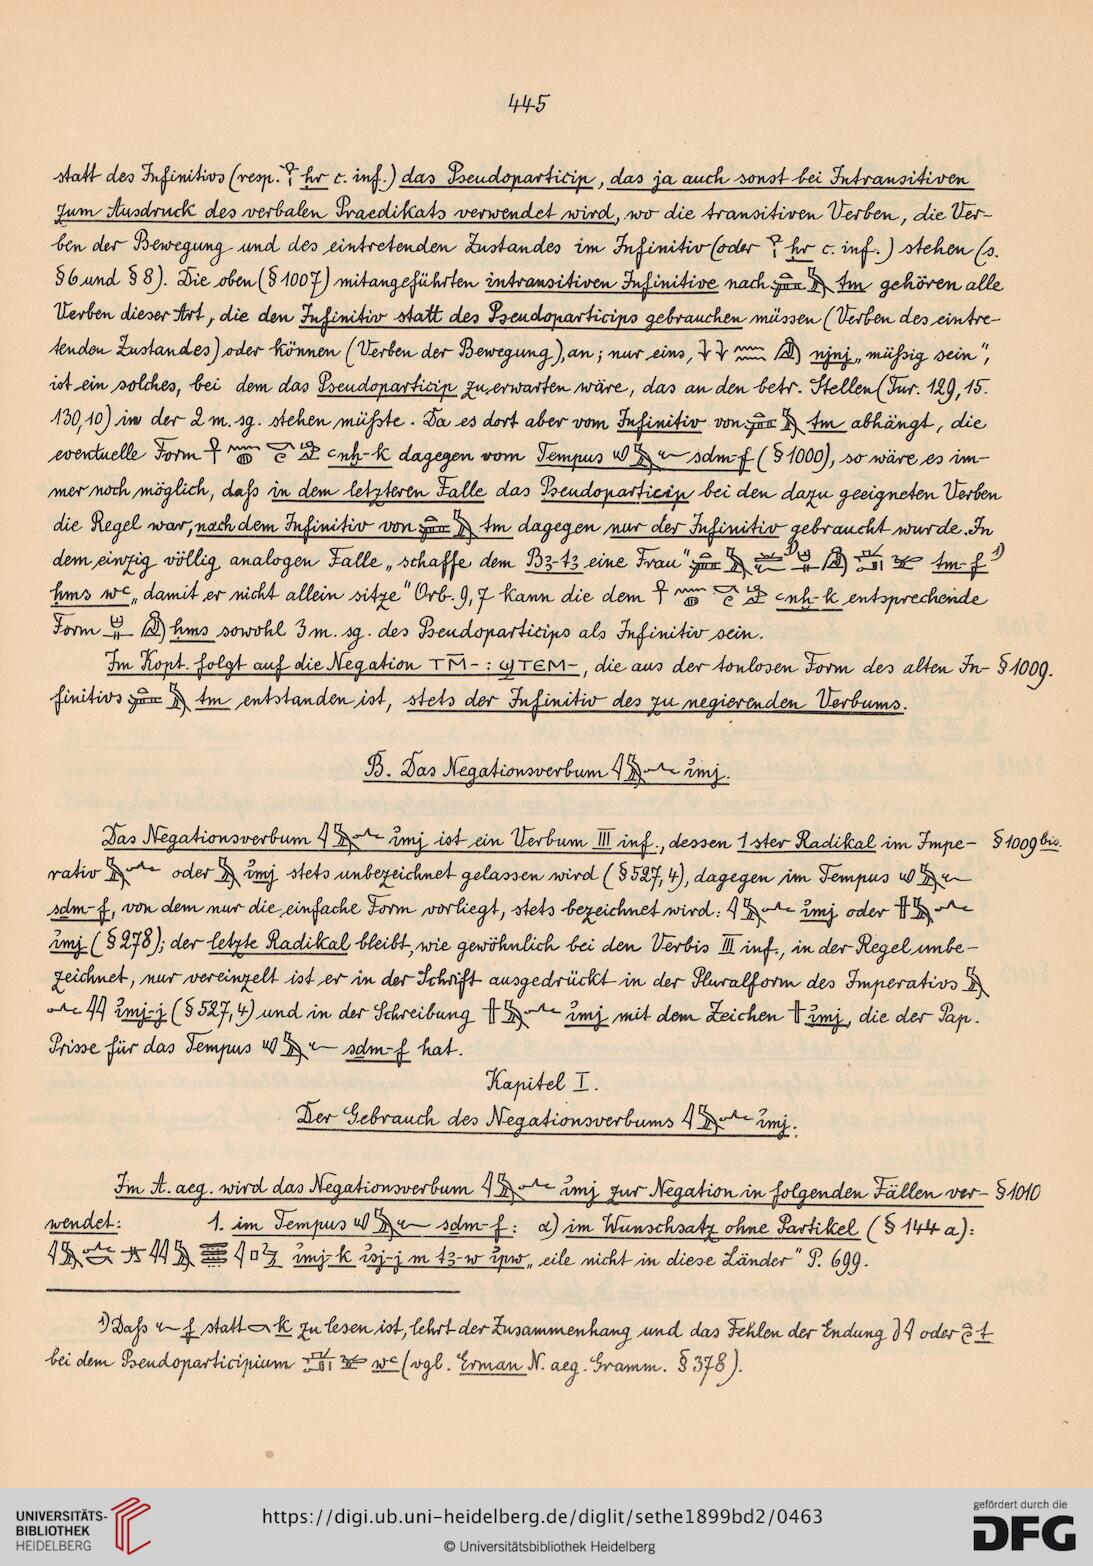 445
statt des Infinitivs (resp. ḥr c. inf.) das Pseudoparticip, das ja auch sonst bei Intransitiven
zum Ausdruck des verbalen Praedikats verwendet wird, wo die transitiven Verben, die Ver-
ben der Bewegung und des eintretenden Zustandes im Infinitiv (oder ḥr c. inf.) stehen (s.
§ 6 und § 8). Die oben (§ 1007) mitangeführten intransitiven Infinitive nach tm gehören alle
Verben dieser Art, die den Infinitiv statt des Pseudoparticips gebrauchen müssen (Verben des eintre-
tenden Zustandes) oder können (Verben der Bewegung), an; nur eins, njnj „müßig sein",
ist ein solches, bei dem das Pseudoparticip zu erwarten wäre, das an den betr. Stellen (Tur. 129,15.
130,10) in der 2 m. sg. stehen müßte. Da es dort aber vom Infinitiv von tm abhängt, die
eventuelle Form ꜥnḫ-k dagegen vom Tempus sdm-f (§ 1000), so wäre es im-
mer noch möglich, daß in dem letzteren Falle das Pseudoparticip bei den dazu geeigneten Verben
die Regel war, nach dem Infinitiv von tm dagegen nur der Infinitiv gebraucht wurde. In
dem einzig völlig analogen Falle „schaffe dem Bꜣ-tꜣ eine Frau" tm-f ¹)
ḥms wꜥ „damit er nicht allein sitze" Orb. 9,7 kann die dem ꜥnḫ-k entsprechende
Form ḥms sowohl 3 m. sg. des Pseudoparticips als Infinitiv sein.
Im Kopt. folgt auf die Negation ⲧⲙ̄- : ϣⲧⲉⲙ-, die aus der tonlosen Form des alten In- § 1009.
finitivs tm entstanden ist, stets der Infinitiv des zu negierenden Verbums.
B. Das Negationsverbum imj.
Das Negationsverbum imj ist ein Verbum III inf., dessen 1ster Radikal im Impe- § 1009 bis.
rativ oder imj stets unbezeichnet gelassen wird (§ 527,4), dagegen im Tempus
sdm-f, von dem nur die einfache Form vorliegt, stets bezeichnet wird: imj oder
imj (§ 278); der letzte Radikal bleibt, wie gewöhnlich bei den Verbis III inf., in der Regel unbe-
zeichnet, nur vereinzelt ist er in der Schrift ausgedrückt in der Pluralform des Imperativs
imj-j (§ 527,4) und in der Schreibung imj mit dem Zeichen imj, die der Pap.
Prisse für das Tempus sdm-f hat.
Kapitel I.
Der Gebrauch des Negationsverbums imj.
Im A. aeg. wird das Negationsverbum imj zur Negation in folgenden Fällen ver- § 1010
wendet: 1. im Tempus sdm-f: α) im Wunschsatz ohne Partikel (§ 144 a):
imj-k isj-j m tꜣ-w ipw „eile nicht in diese Länder" P. 699.
¹) Daß f statt k zu lesen ist, lehrt der Zusammenhang und das Fehlen der Endung oder t
bei dem Pseudoparticipium wꜥ (vgl. Erman N. aeg. Gramm. § 378).
UNIVERSITÄTS-
BIBLIOTHEK
HEIDELBERG
https://digi.ub.uni-heidelberg.de/diglit/sethe1899bd2/0463
© Universitätsbibliothek Heidelberg
gefördert durch die
DFG